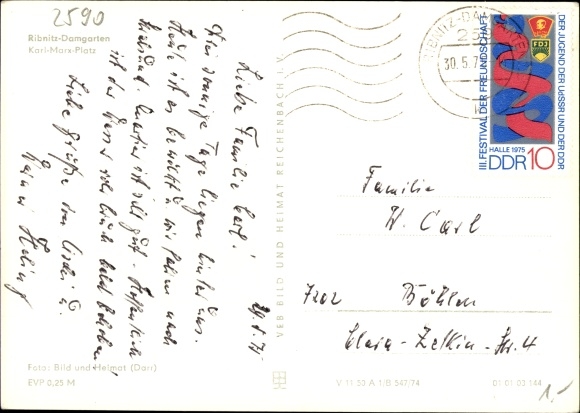 2590
Ribnitz-Damgarten
Karl-Marx-Platz
Liebe Familie Carl!
29.5.75
Vier sonnige Tage liegen hinter uns.
Heute ist es bewölkt u. wir fahren nach
Stralsund. Quartier ist sehr gut. Hoffentlich
ist das Essen
Liebe Grüße von
Foto: Bild und Heimat (Darr)
EVP 0,25 M
VEB BILD UND HEIMAT REICHENBACH i.
V 11 50 A 1/B 547/74
01 01 03 144
RIBNITZ-DAMGARTEN
259
30.5.75
III. FESTIVAL DER FREUNDSCHAFT
DER JUGEND DER UdSSR UND DER DDR
FDJ
HALLE 1975
DDR 10
Familie
W. Carl
7202 Böhlen
Clara-Zetkin-Str. 4
1,-